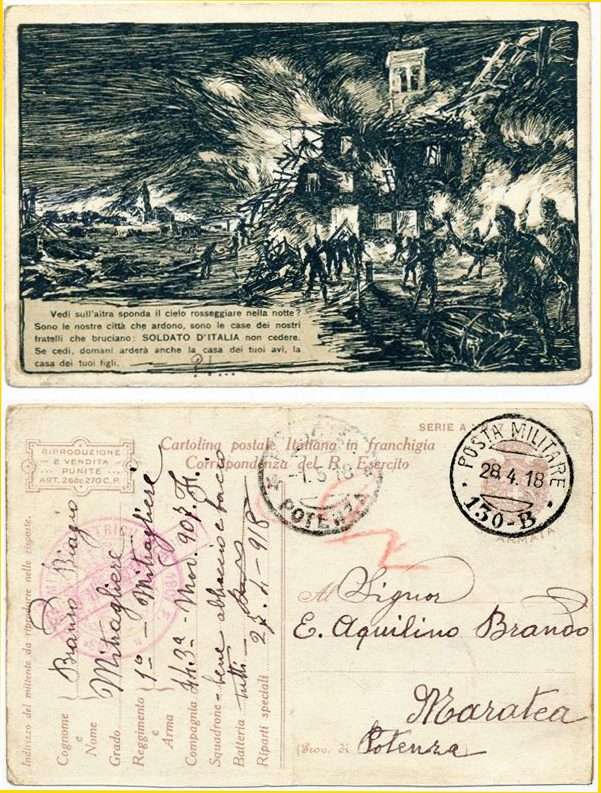 Vedi sull'altra sponda il cielo rosseggiare nella notte?
Sono le nostre città che ardono, sono le case dei nostri
fratelli che bruciano: SOLDATO D'ITALIA non cedere.
Se cedi, domani arderà anche la casa dei tuoi avi, la
casa dei tuoi figli.
SERIE A
RIPRODUZIONE
E VENDITA
PUNITE
ART. 268 e 270 C.P.
Cartolina postale Italiana in franchigia
Corrispondenza del R. Esercito
-1.5.18
POTENZA
POSTA MILITARE
28.4.18
130-B
ARMATA
Indirizzo del mittente da riprodurre nelle risposte.
Cognome e Nome Biagio
Grado Mitragliere
Reggimento e Arma 1° - Mitragliese
Compagnia
Squadrone - bene abbraccio e bacio
Batteria tutti
Riparti speciali
Al Signor
E. Aquilino Brando
Maratea
(Prov. di Potenza